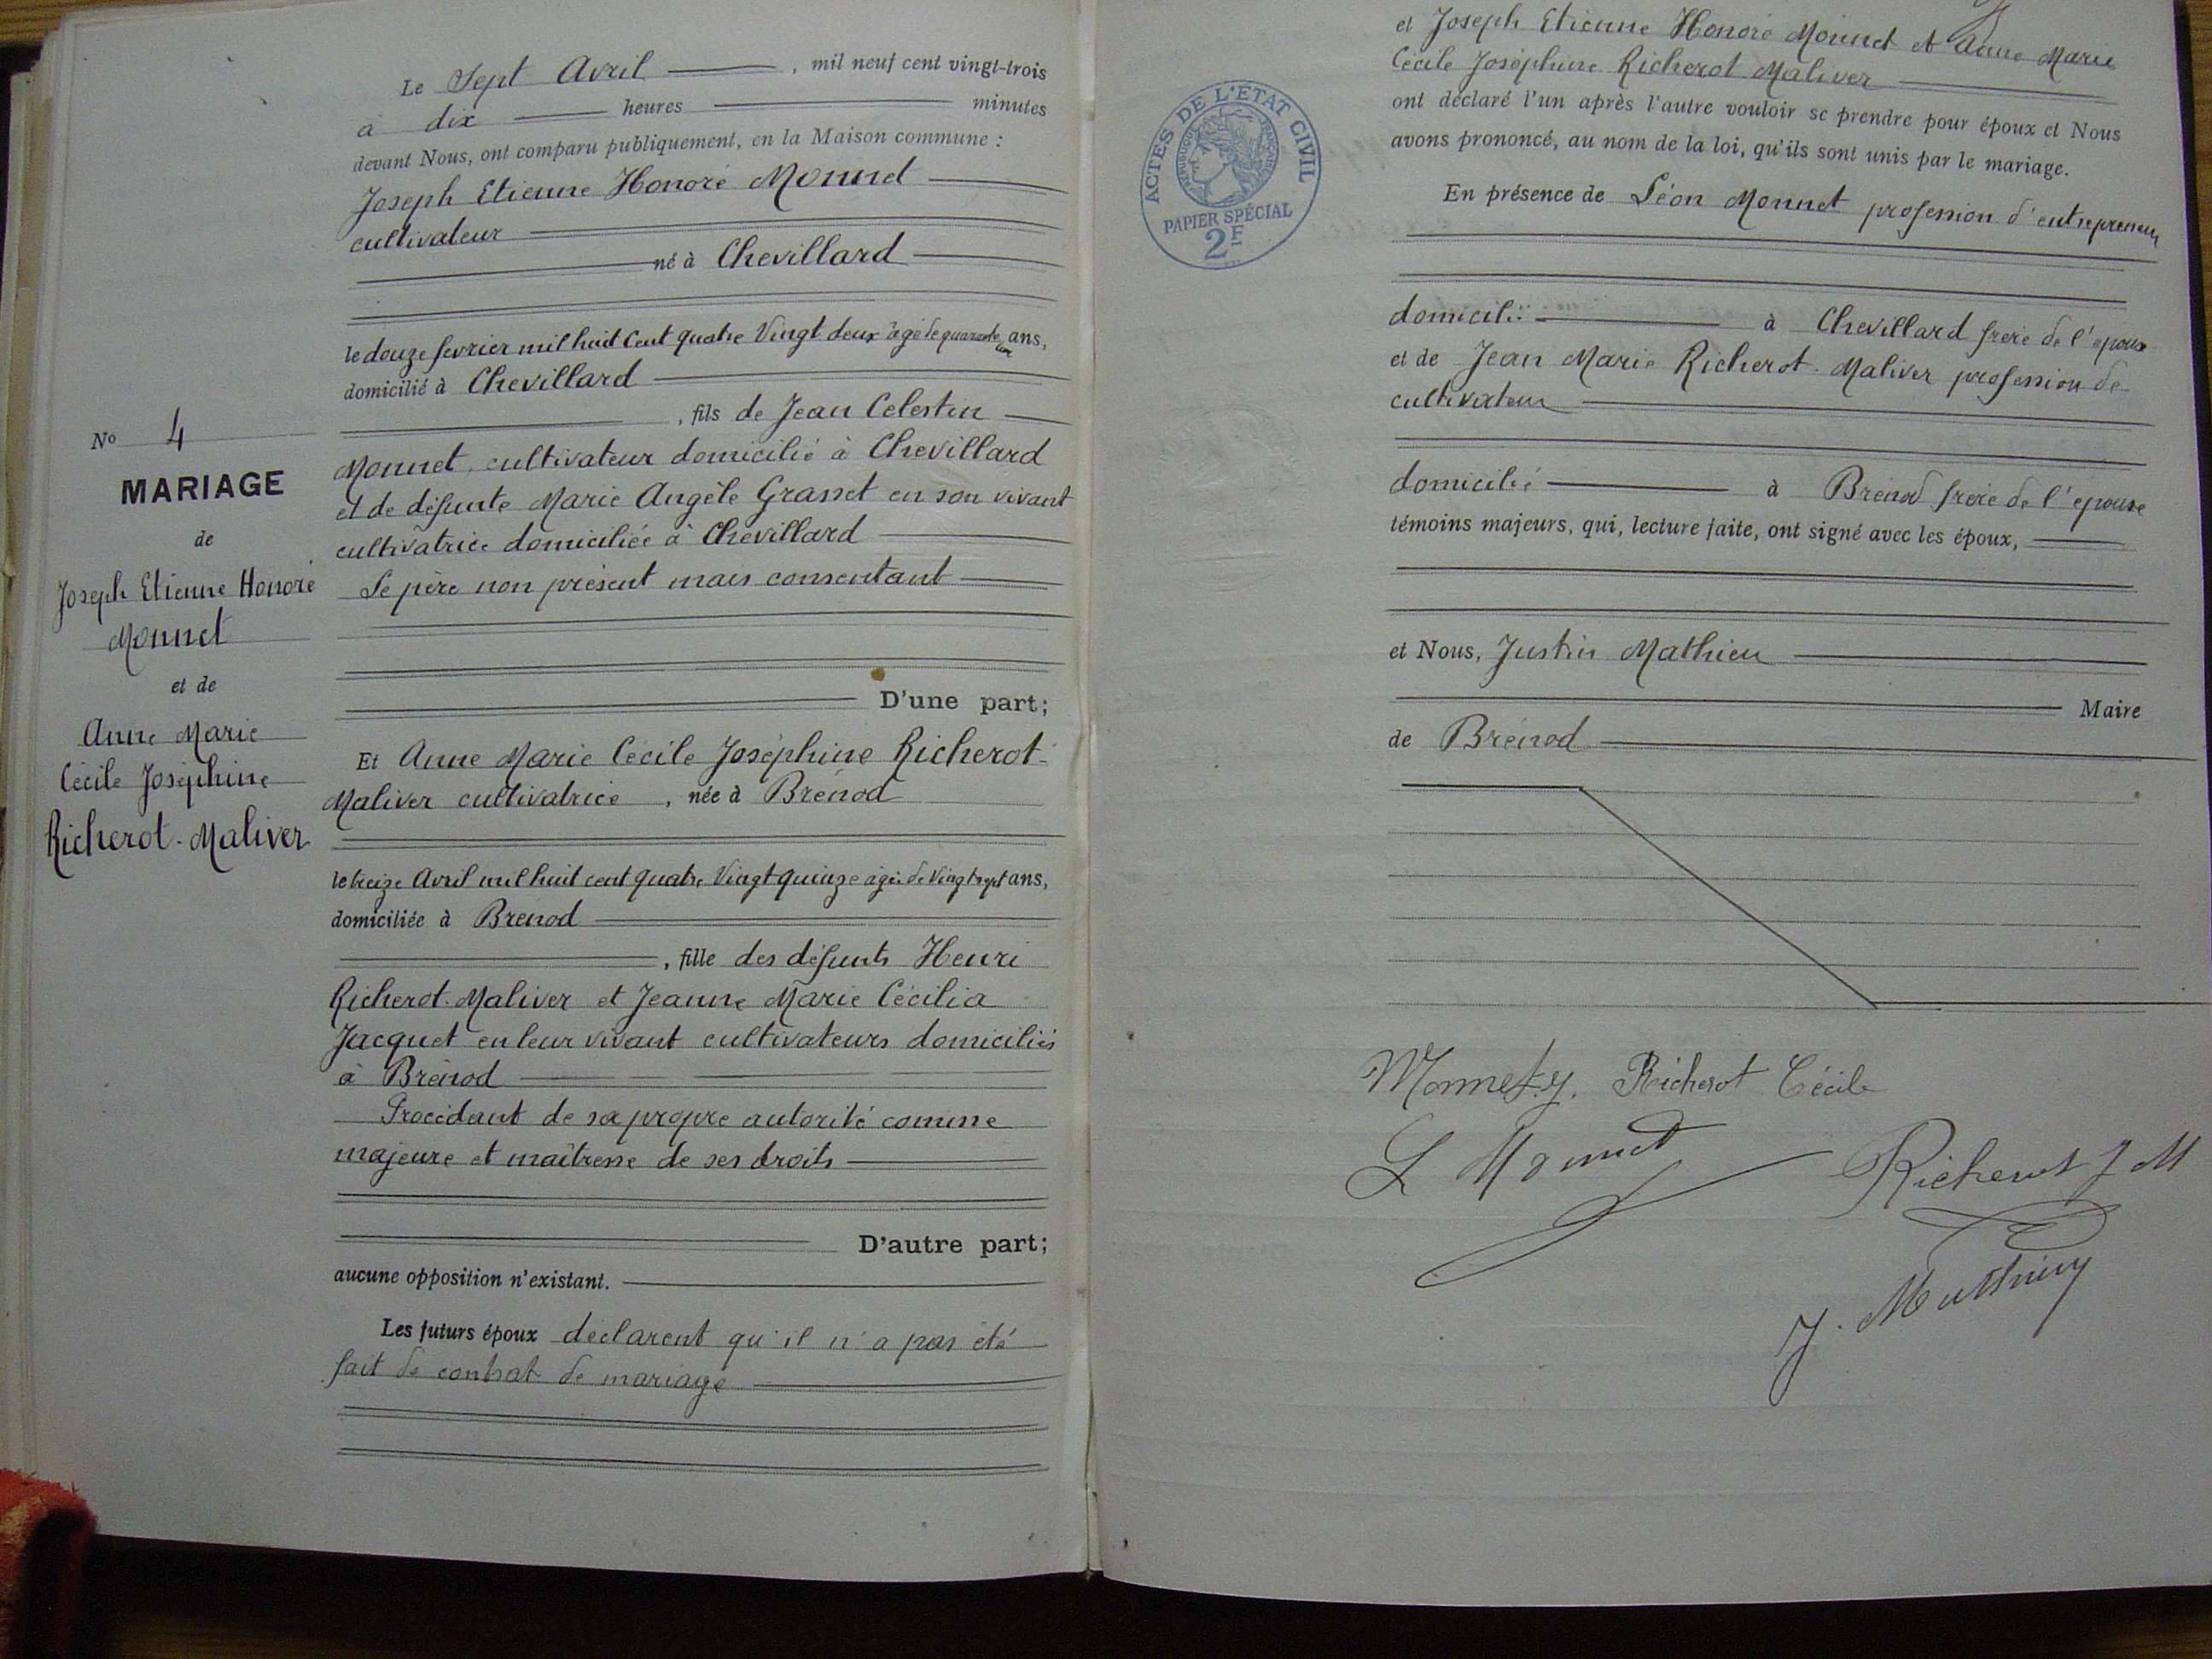 Le Sept Avril, mil neuf cent vingt-trois
à dix heures minutes
devant Nous, ont comparu publiquement, en la Maison commune :
Joseph Etienne Honoré Monnet
cultivateur
né à Chevillard
le douze fevrier mil huit Cent quatre Vingt deux âgé de quarante un ans,
domicilié à Chevillard
, fils de Jean Celestin
Monnet, cultivateur domicilié à Chevillard
et de défunte Marie Angèle Grasset en son vivant
cultivatrice domiciliée à Chevillard
Le père non présent mais consentant
D'une part;
No 4
MARIAGE
de
Joseph Etienne Honoré
Monnet
et de
Anne Marie
Cécile Joséphine
Richerot-Maliver
Et Anne Marie Cécile Joséphine Richerot-
Maliver cultivatrice, née à Brénod
le treize Avril mil huit cent Quatre Vingt quinze agée de Vingt sept ans,
domiciliée à Brenod
, fille des défunts Henri
Richerot-Maliver et Jeanne Marie Cécilia
Jacquet en leur vivant cultivateurs domiciliés
à Brénod
Procédant de sa propre autorité comme
majeure et maîtresse de ses droits
D'autre part;
aucune opposition n'existant.
Les futurs époux déclarent qu'il n'a pas été
fait de contrat de mariage
ACTES DE L'ÉTAT CIVIL
PAPIER SPÉCIAL
2F
et Joseph Etienne Honoré Monnet et Anne Marie
Cécile Joséphine Richerot Maliver
ont déclaré l'un après l'autre vouloir se prendre pour époux et Nous
avons prononcé, au nom de la loi, qu'ils sont unis par le mariage.
En présence de Léon Monnet profession d'entrepreneur
domicilié à Chevillard frere de l'epoux
et de Jean Marie Richerot-Maliver profession de
cultivateur
domicilié à Brénod frere de l'epouse
témoins majeurs, qui, lecture faite, ont signé avec les époux,
et Nous, Justin Mathieu
Maire
de Brénod
Monnet J. Richerot Cécile
L Monnet Richerot J M
J. Mathieu